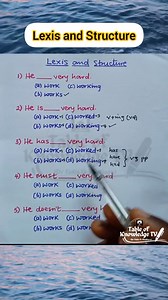 Lexis and Structure
Lexis and Structure
1) He ____ very hard.
(a) work (c) working
(b) works ✓
2) He is ____ very hard.
(a) work (c) worked
(b) works (d) working ✓
3) He has ____ very hard.
(a) work (c) worked
has
have
had
V3 PP
(b) works (d) working
4) He must ____ very hard
(a) work (c) worked
(b) works (d) working
5) He doesn't ____ very hard
(a) work
(b) works
Table of
Knowledge TV